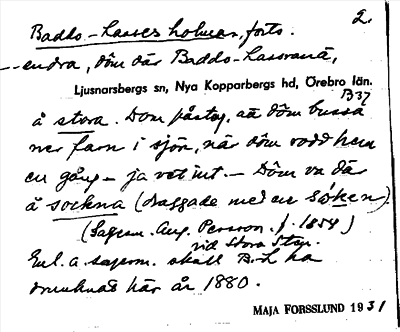 Baddo-Lasses holmen, forts. 2.
-- endra, döm där Baddo-Lassvand,
Ljusnarsbergs sn, Nya Kopparbergs hd, Örebro län.
B37
å stora. Dom påstog, att döm bussa
ner farn i sjön, när döm rodd hem
en gång – ja vet int. – Döm va där
å sockna (draggade med en sóken)
(Sagesm. Aug. Persson f. 1854)
vid Stora Stj.
Enl. a. sagesm. skall B-L ha
drunknat här år 1880.
MAJA FORSSLUND 1931